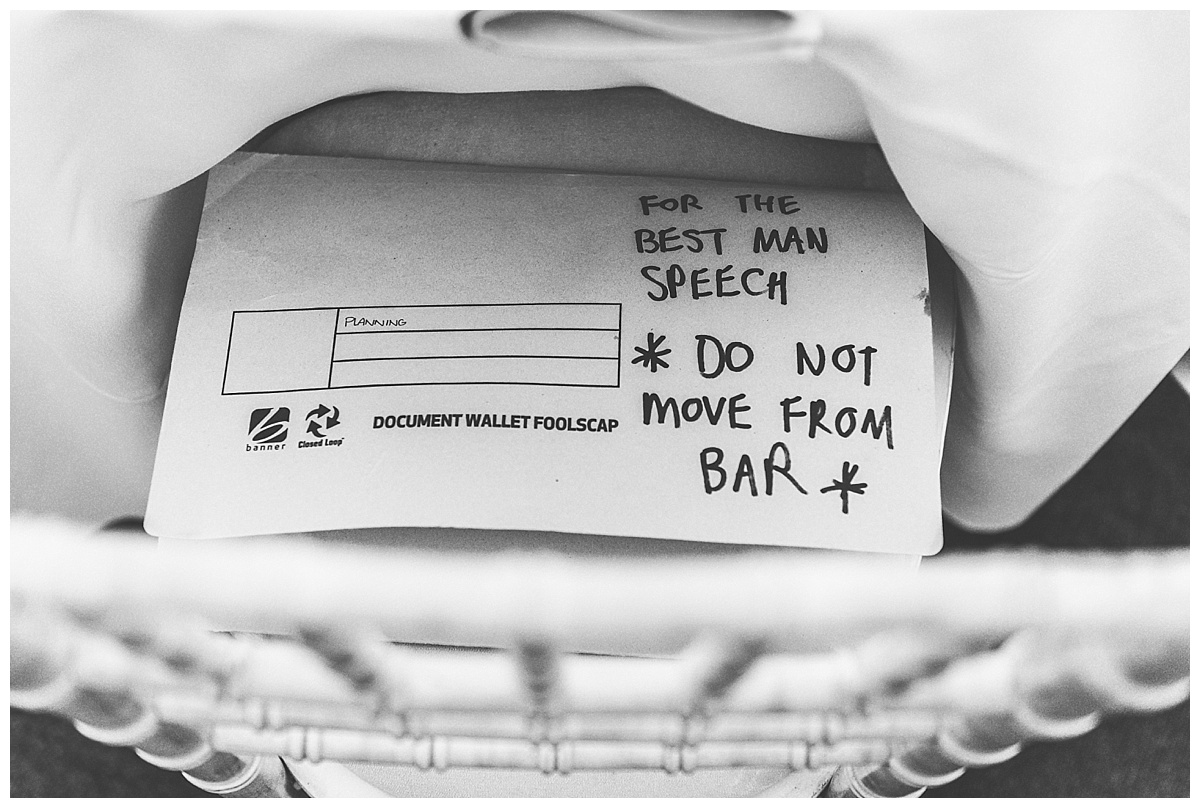 FOR THE
BEST MAN
SPEECH
* DO NOT
MOVE FROM
BAR *
PLANNING
banner
Closed Loop™
DOCUMENT WALLET FOOLSCAP